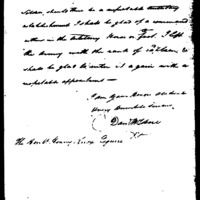 should there be a respectable
establishment I shall be glad of a command
either in the Artillery Horse or Foot. I left
the Army with the rank of
shall be glad to enter it again with a
respectable appointment —
I am Your Honors Obedient
Very Humble Servant
The Honbl. Henry Knox Esquire